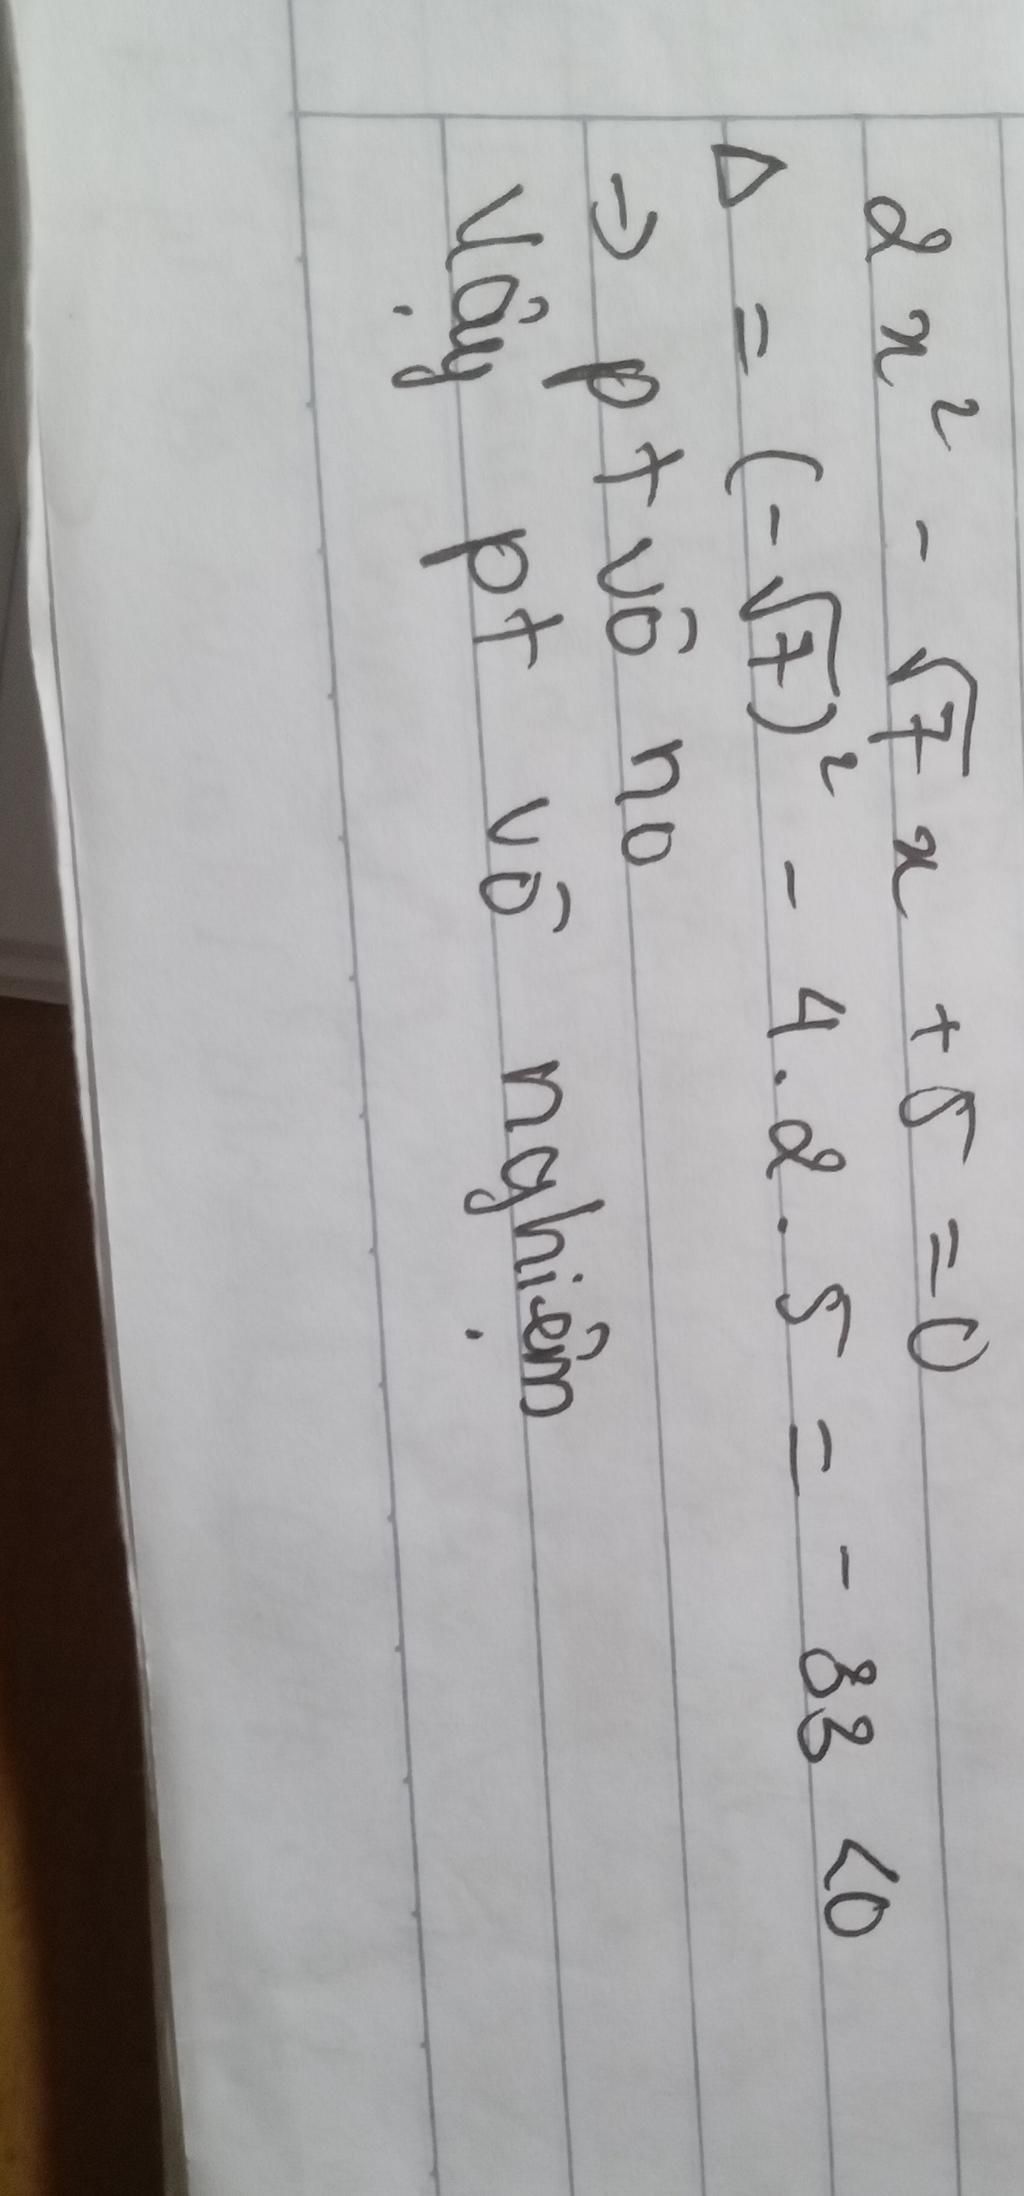 2x² - √7x + 5 = 0
Δ = (-√7)² - 4.2.5 = - 33 <0
→ pt vô no
Vậy pt vô nghiệm